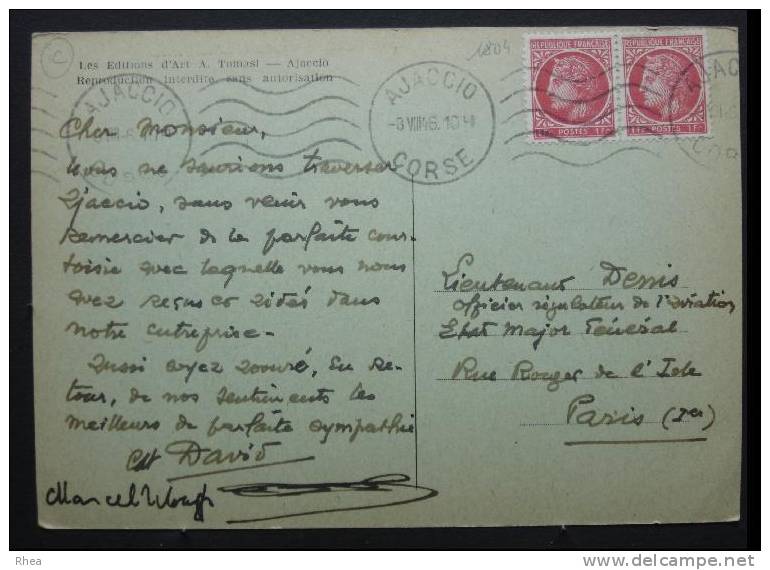 Les Editions d'Art A. Tomasi — Ajaccio
Reproduction interdite sans autorisation
1804
REPUBLIQUE FRANÇAISE REPUBLIQUE FRANÇAISE
1F POSTES 1F POSTES 1F
AJACCIO
CORSE
AJACCIO
-8 VIII 46. 10 H
CORSE
Cher Monsieur,
Nous ne saurions traverser
Ajaccio, sans venir vous
remercier de la parfaite cour-
toisie avec laquelle vous nous
avez reçus et aidés dans
notre entreprise -
Aussi soyez assuré, en re-
tour, de nos sentiments les
meilleurs de parfaite sympathie
David
Marcel
Lieutenant Denis
officier régulateur de l'aviation
Etat Major Général
Rue Rouget de l'Isle
Paris (Ier)
Rhea
www.delcampe.net